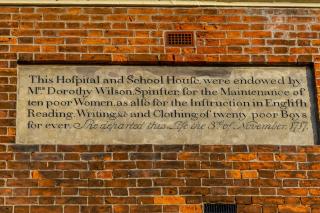 This Hospital and School House, were endowed by
Mrs Dorothy Wilson, Spinster, for the Maintenance of
ten poor Women, as also for the Instruction in English
Reading, Writing, and Clothing of twenty poor Boys
for ever. She departed this Life the 3d of November, 1717.